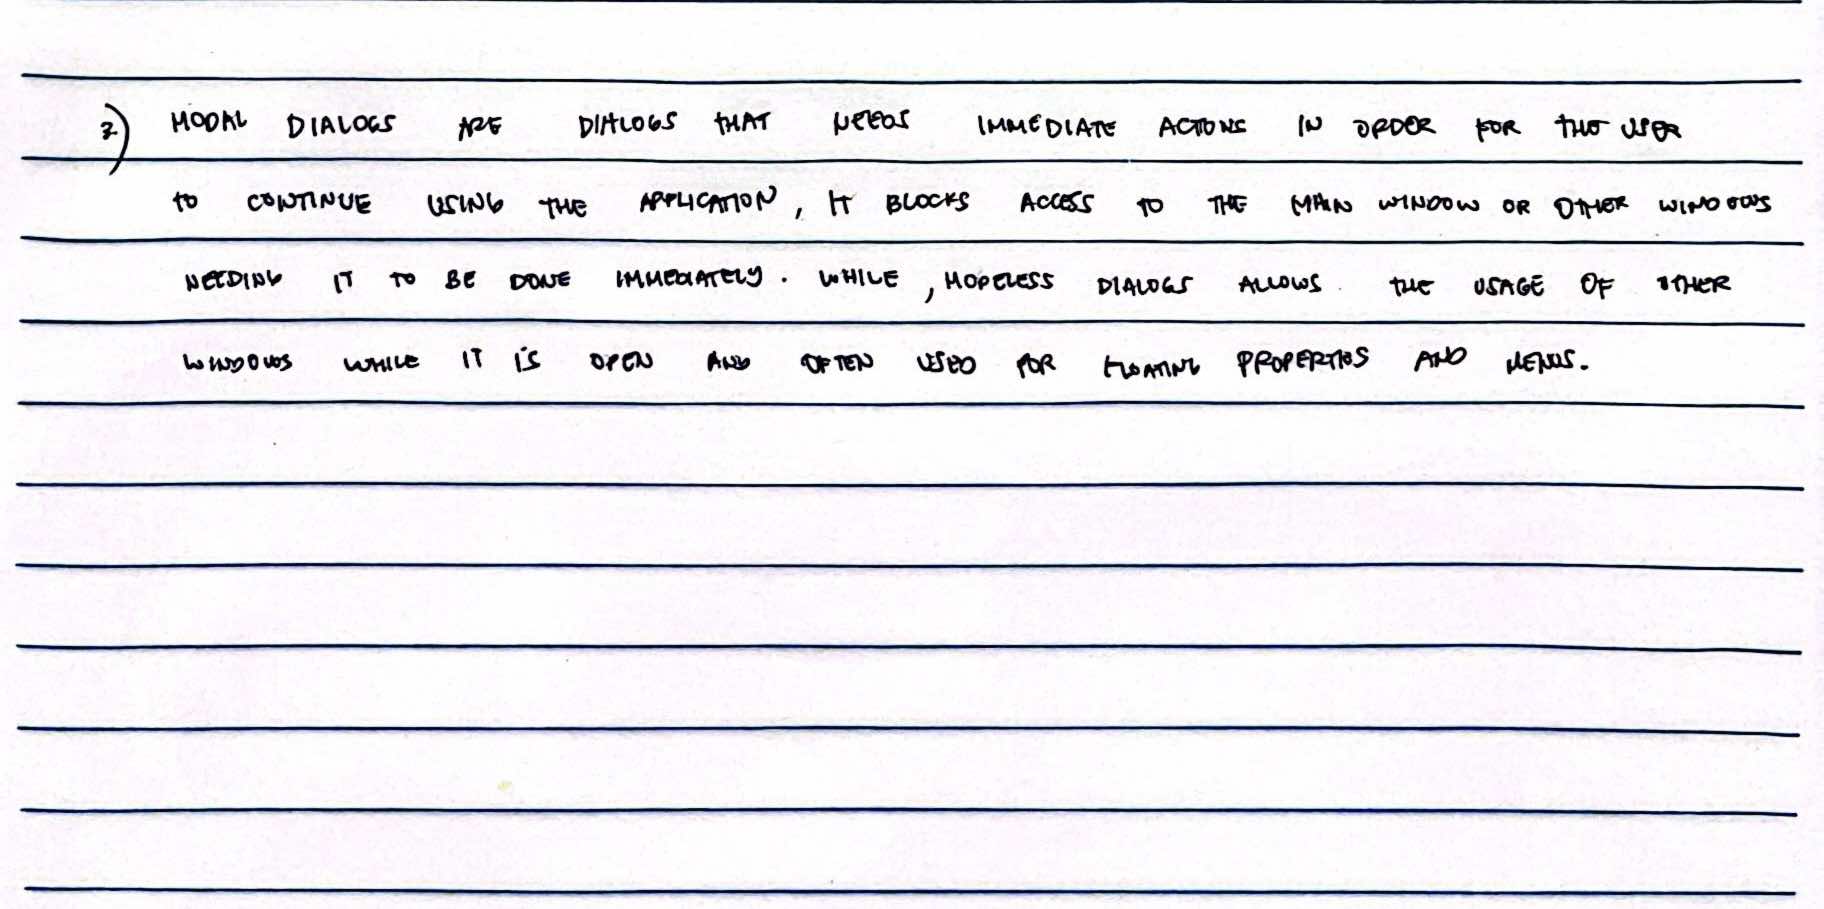 2) MODAL DIALOGS ARE DIALOGS THAT NEEDS IMMEDIATE ACTIONS IN ORDER FOR THE USER
TO CONTINUE USING THE APPLICATION, IT BLOCKS ACCESS TO THE MAIN WINDOW OR OTHER WINDOWS
NEEDING IT TO BE DONE IMMEDIATELY. WHILE, MODELESS DIALOGS ALLOWS THE USAGE OF OTHER
WINDOWS WHILE IT IS OPEN AND OFTEN USED FOR FLOATING PROPERTIES AND MENUS.